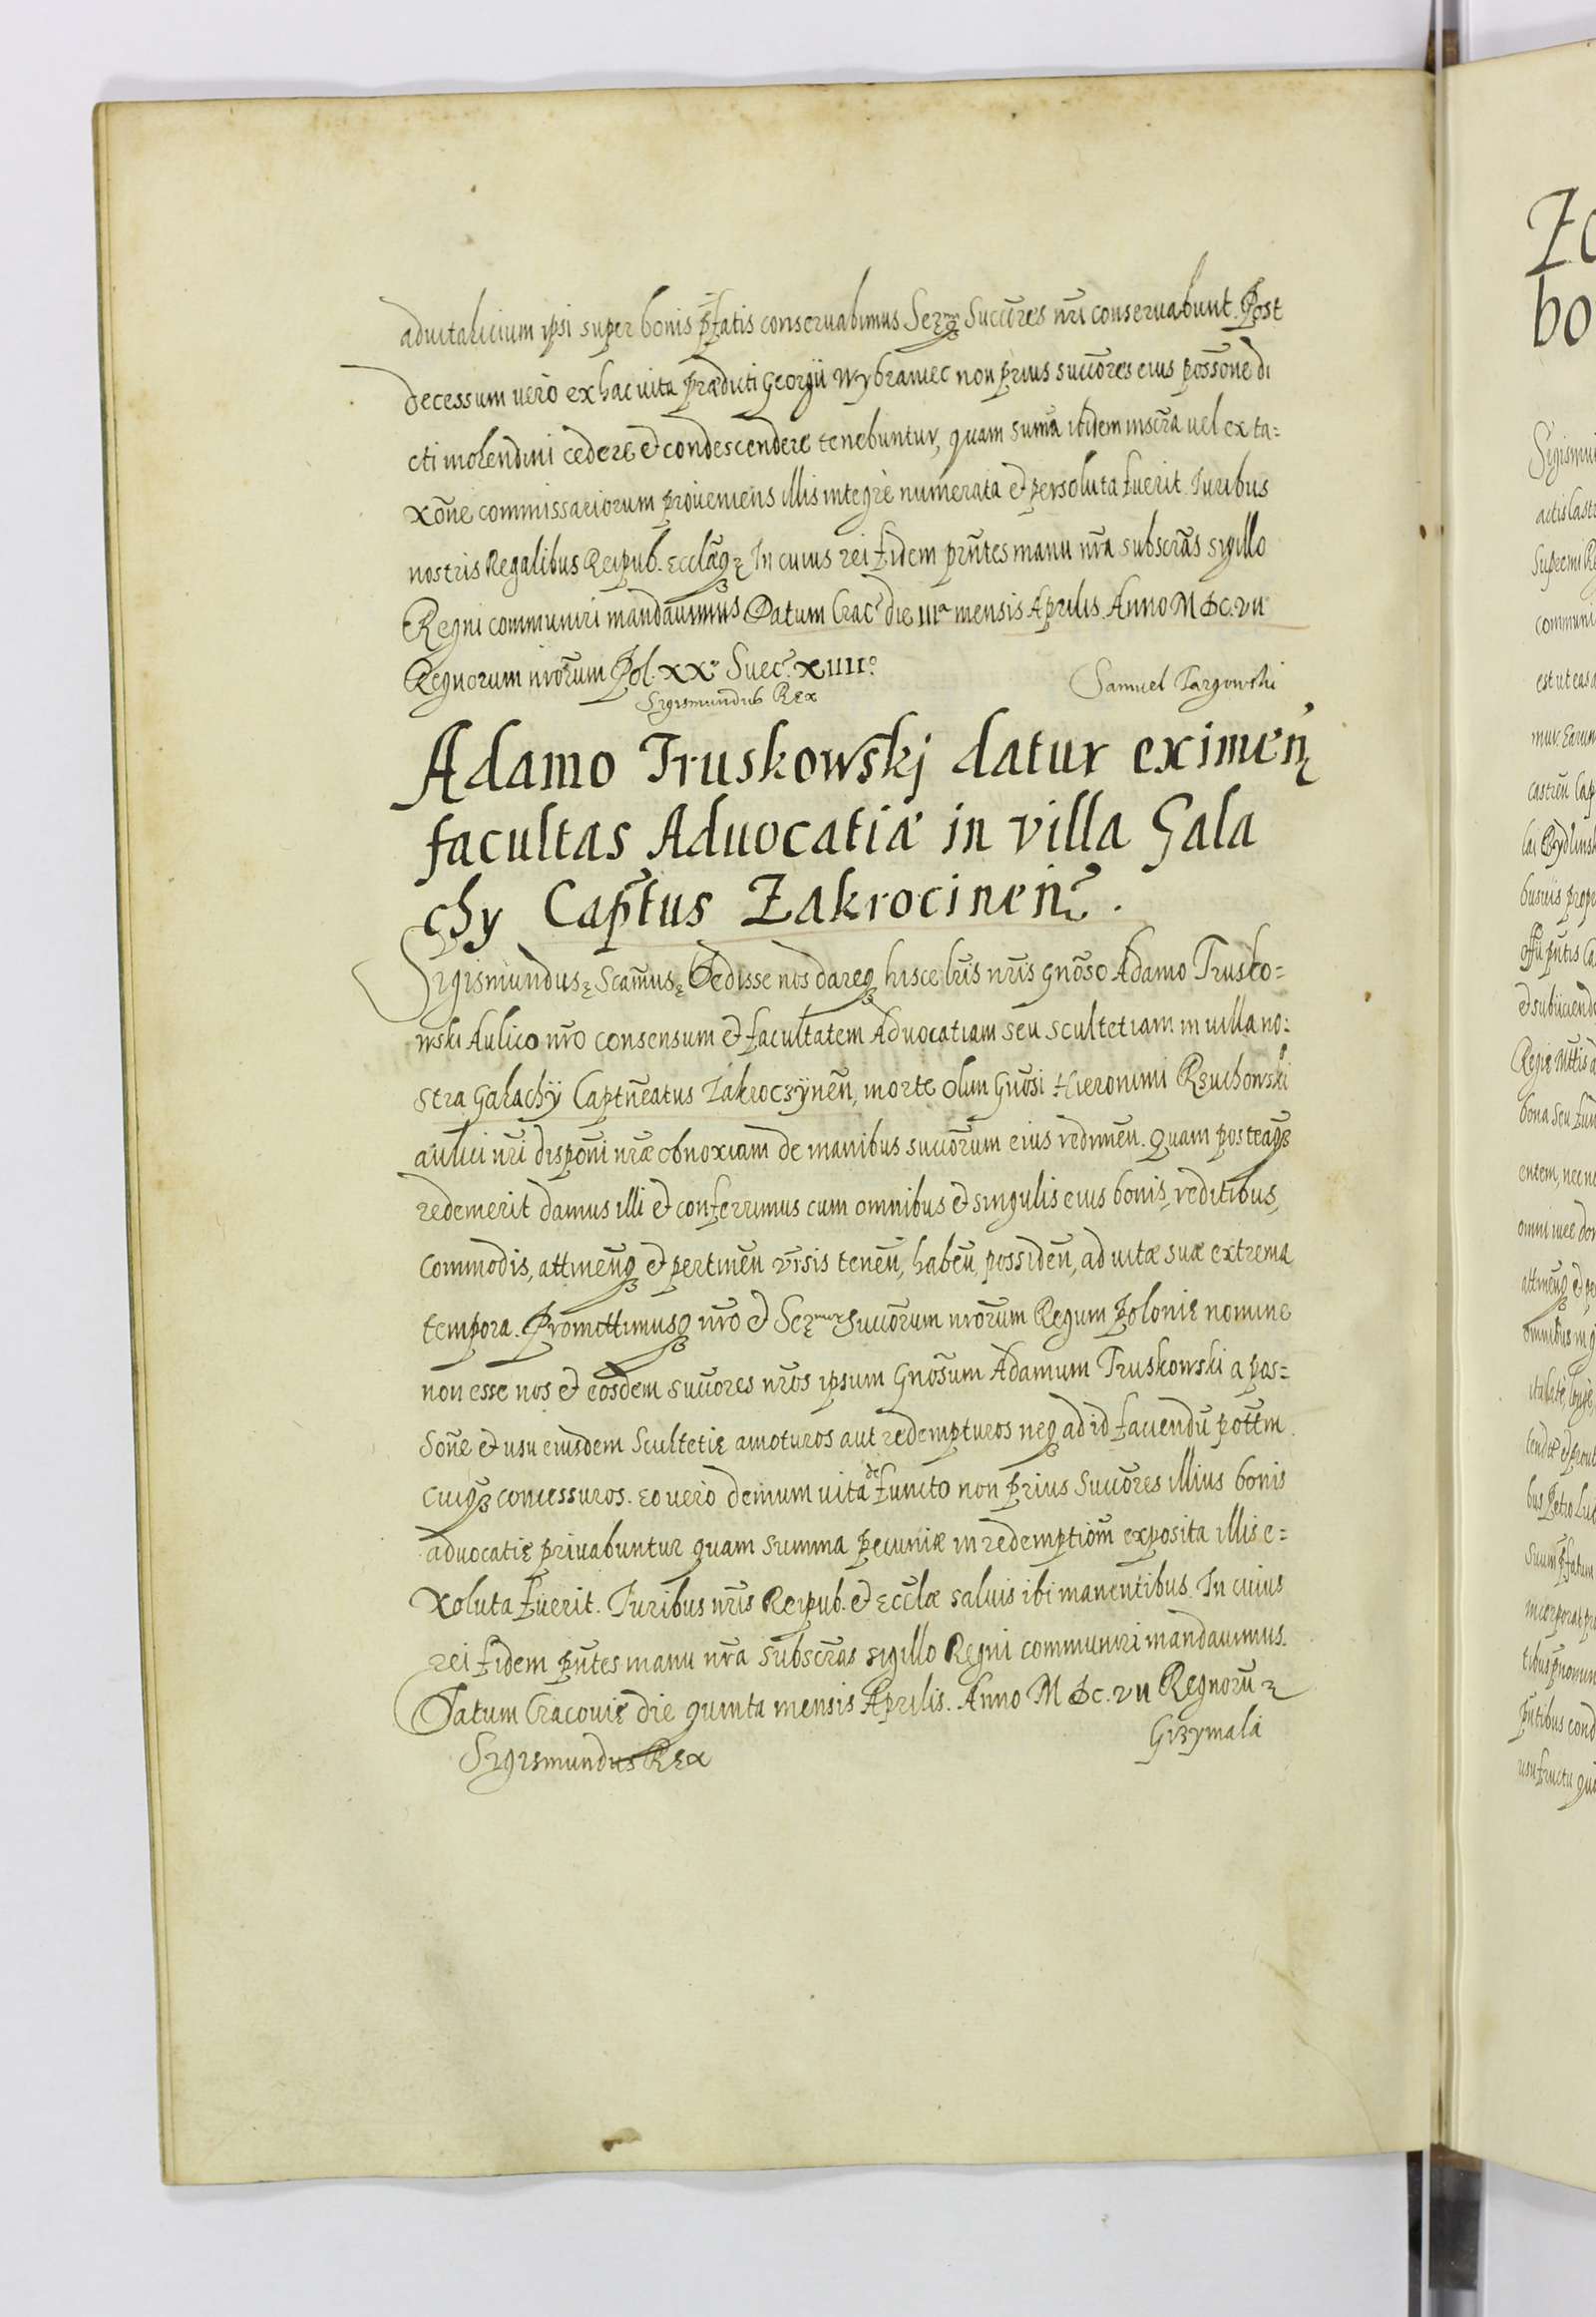 aduitalicium ipsi super bonis p̃fatis conseruabimus Serm̃iq Succ̃res nr̃i conseruabunt. Post
decessum vero ex hac vita prædicti Georgii Wybraniec non prius succ̃ores eius poss̃one di
cti molendini cedere et condescendere tenebuntur, quam sum̃a ibidem inscr̃a vel ex ta=
xõne commissariorum proueniens illis integrè numerata et persoluta fuerit. Iuribus
nostris Regalibus Reipub. Eccl̃æq3 In cuius rei fidem prñtes manu nr̃a subscr̃as sigillo
Regni communiri mandauimus Datum Crac? die IIIa mensis Aprilis. Anno M DC. VII
Regnorum nr̃orum Pol. XXo Suec? XIIIIo
Sigismundus Rex
Samuel Targowski
Adamo Truskowskj datur eximeñ
facultas Aduocatiæ in villa Gala
chy Cap̃tus Zakrocineñ.
Sigismundus Scam̃us Dedisse nos dareq3 hisce lr̃is nr̃is Gnõso Adamo Trusko=
wski Aulico nr̃o consensum et facultatem Aduocatiam seu scultetiam in villa no=
stra Galachÿ Captñeatus Zakroczÿneñ, morte olim Gnõsi Hieronimi Rzuchowski
aulici nr̃i disponĩ nr̃æ obnoxiam de manibus succ̃orum eius redimeñ. Quam posteaq3
redemerit damus illi et conferrimus cum omnibus et singulis eius bonis, reditibus,
commodis, attineñq3 et pertineñ vr̃sis teneñ, habeñ, possideñ, ad vitæ suæ extrema
tempora. Promittimusq3 nr̃o et Sermorum Succ̃orum nr̃orum Regum Polonię nomine
non esse nos et eosdem succ̃ores nr̃os ipsum Gnõsum Adamum Truskowski a pos=
sõne et usu eiusdem Scultetię amoturos aut redempturos neq3 ad id faciendũ pot̃tm
cuiq3 concessuros. Eo vero demum vita defuncto non prius Succ̃ores illius bonis
aduocatię priuabuntur quam summa pecuniæ in redemptiom̃ exposita illis e=
xoluta fuerit. Iuribus nr̃is Reipub. et Eccl̃æ saluis ibi manentibus. In cuius
rei fidem pñtes manu nr̃a subscr̃as sigillo Regni communiri mandauimus.
Datum Cracovię die quinta mensis Aprilis. Anno M DC. VII Regnorũ
Sigismundus Rex
Grzymala